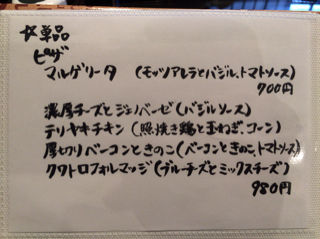 ☆単品
ピザ
マルゲリータ (モッツアレラとバジル、トマトソース)
700円
濃厚チーズとジェノベーゼ (バジルソース)
テリヤキチキン (照焼き鶏と玉ねぎ、コーン)
厚切りベーコンときのこ (ベーコンときのこ、トマトソース)
クワトロフォルマッジ (ブルーチーズとミックスチーズ)
980円